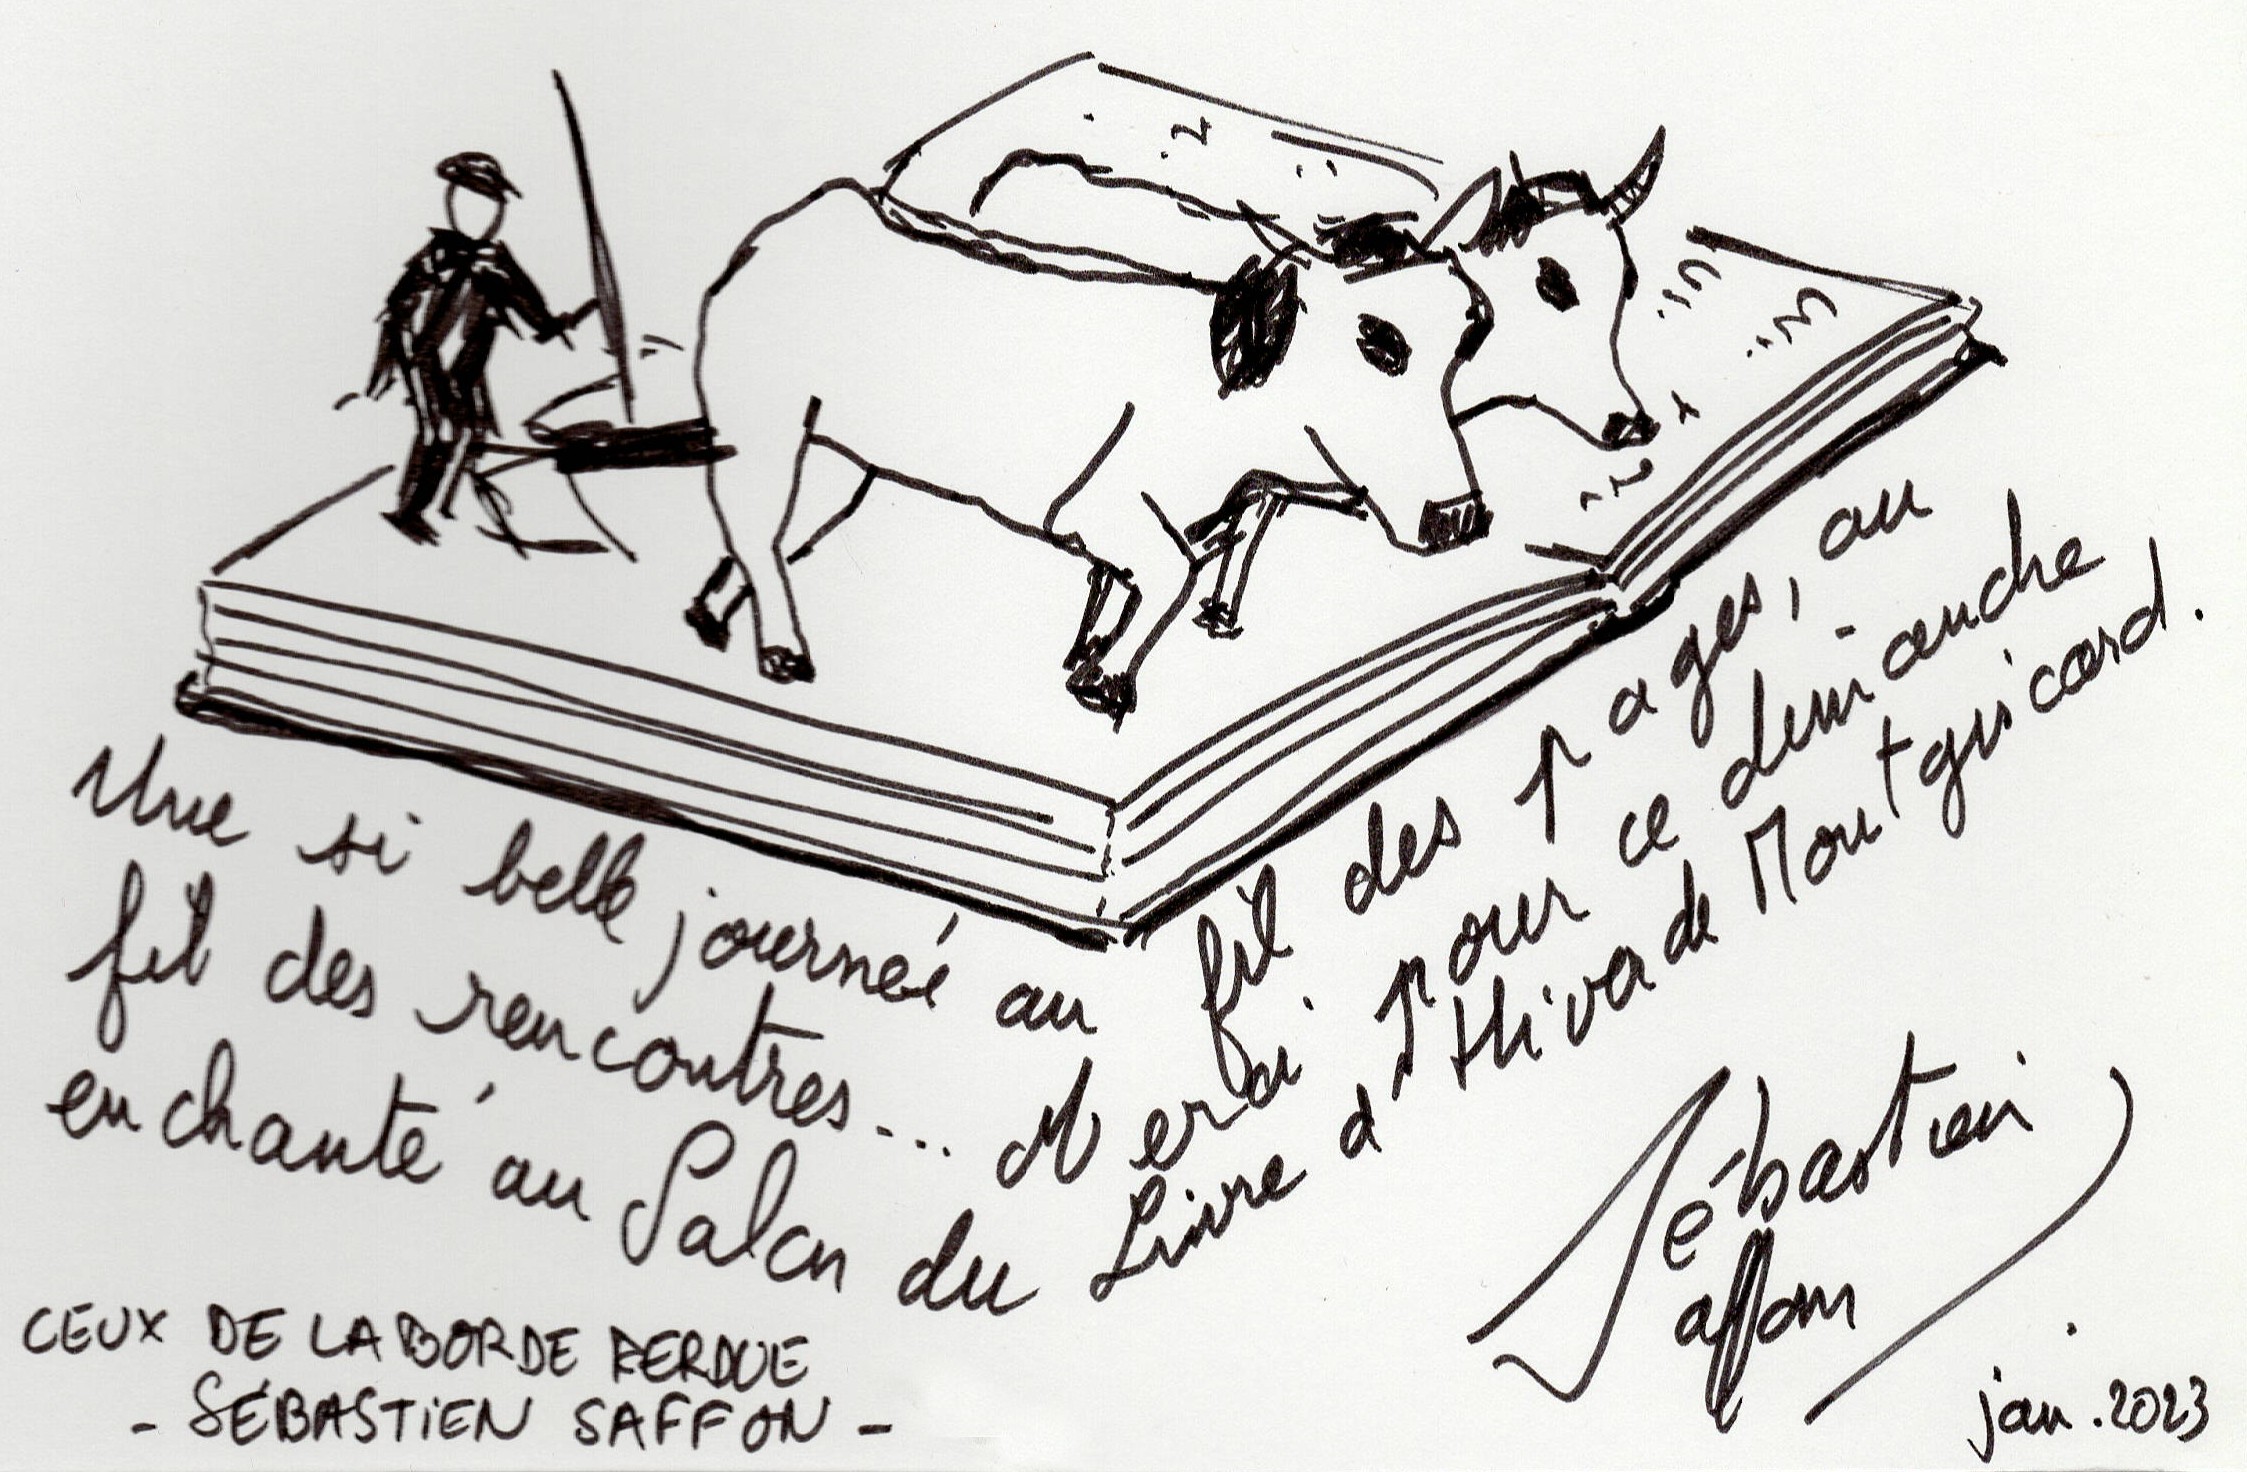 Une si belle journée au fil des pages, au
fil des rencontres... Merci pour ce dimanche
enchanté au Salon du Livre d'Hiver de Montgiscard.
Sébastien
Saffon
jan. 2023
CEUX DE LA BORDE PERDUE
- SÉBASTIEN SAFFON -